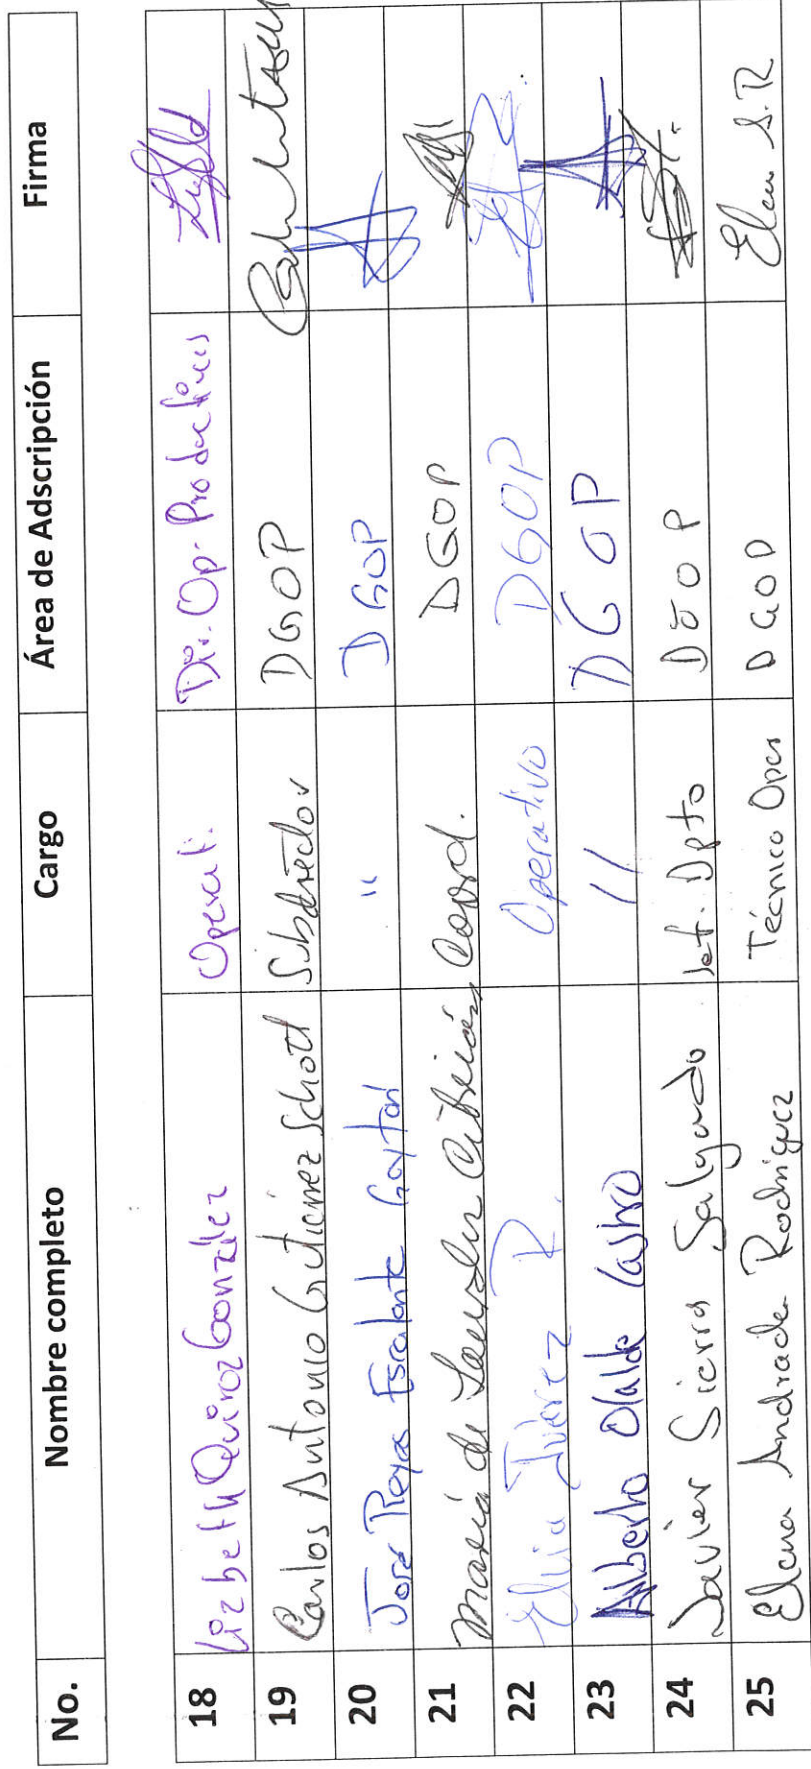 No. Nombre completo Cargo Área de Adscripción Firma
18 Lizbeth Quiroz González Operati. Dir. Op. Productivos
19 Carlos Antonio Gutiérrez Schott Subdirector DGOP
20 José Reyes Escalante Gaytan " DGOP
21 María de Lourdes Coord. DGOP
22 Elvia Juárez R. Operativo DGOP
23 Alberto Olalde Castro " DGOP
24 Javier Sierra Salgado Jef. Dpto DGOP
25 Elena Andrade Rodríguez Técnico Oper DGOP Elena A.R